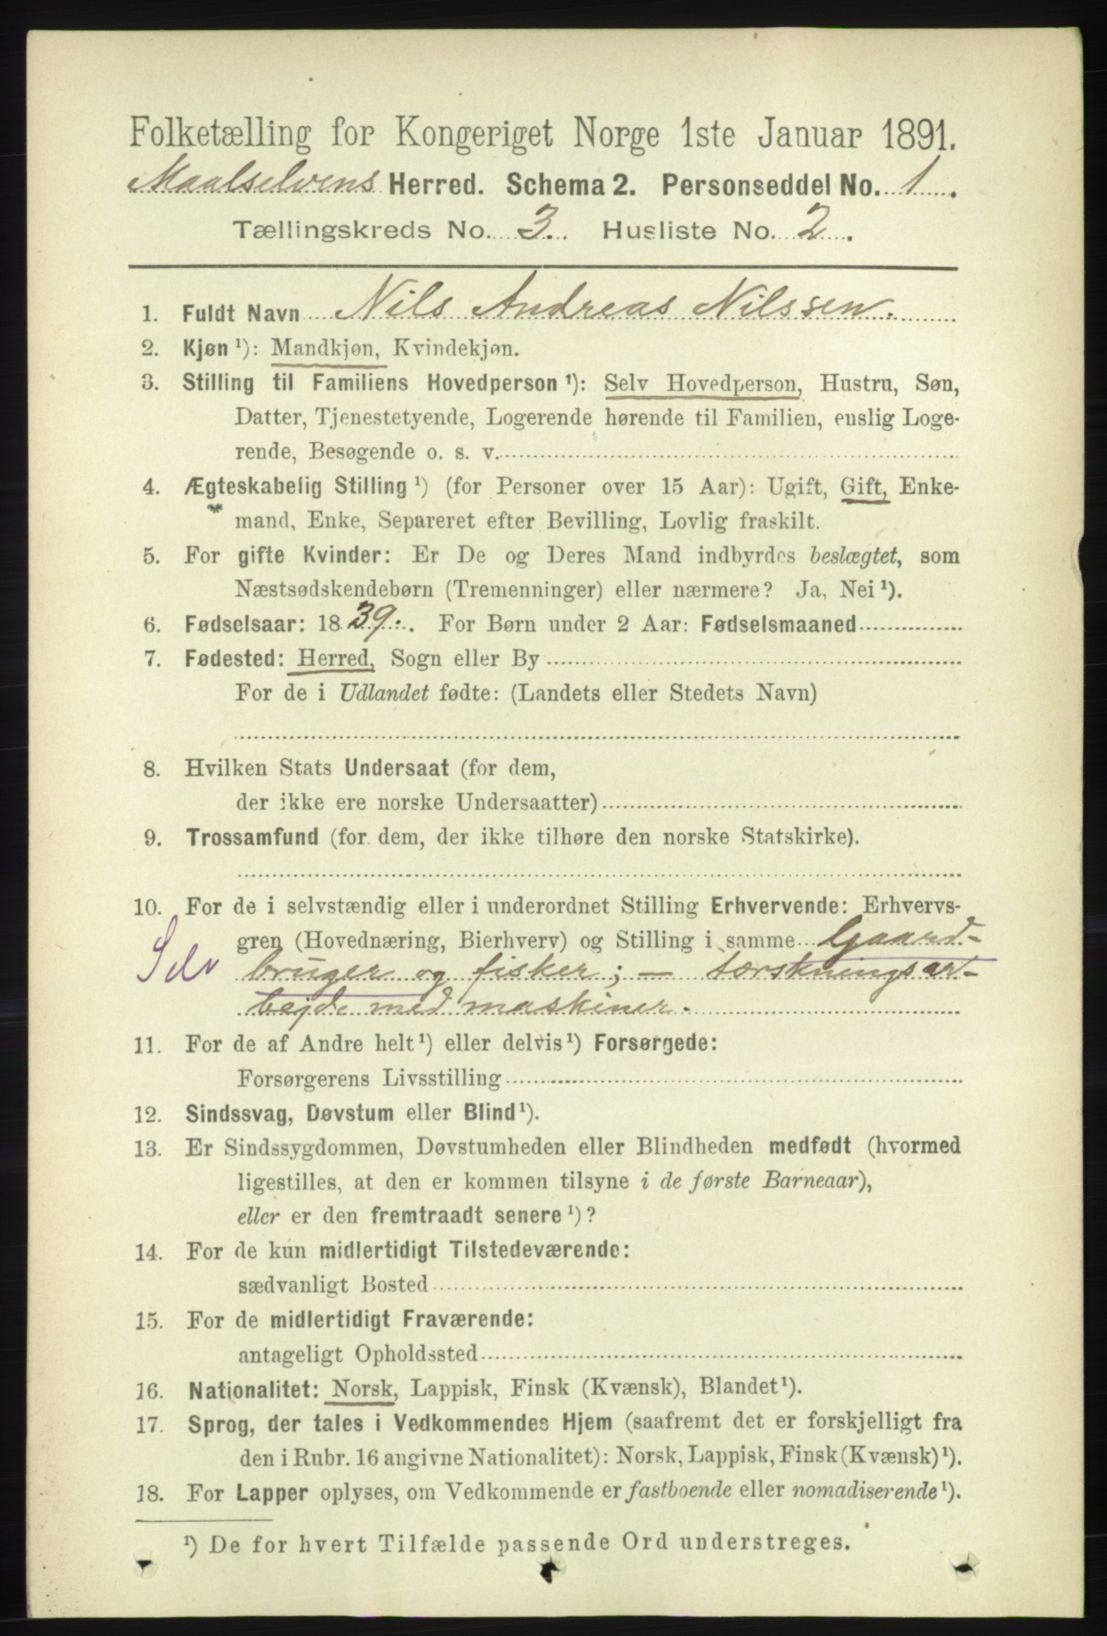 Folketælling for Kongeriget Norge 1ste Januar 1891.
Maalselvens Herred. Schema 2. Personseddel No. 1.
Tællingskreds No. 3. Husliste No. 2.
1. Fuldt Navn Nils Andreas Nilssen.
2. Kjøn ¹): Mandkjøn, Kvindekjøn.
3. Stilling til Familiens Hovedperson ¹): Selv Hovedperson, Hustru, Søn,
Datter, Tjenestetyende, Logerende hørende til Familien, enslig Loge-
rende, Besøgende o. s. v.
4. Ægteskabelig Stilling ¹) (for Personer over 15 Aar): Ugift, Gift, Enke-
mand, Enke, Separeret efter Bevilling, Lovlig fraskilt.
5. For gifte Kvinder: Er De og Deres Mand indbyrdes beslægtet, som
Næstsødskendebørn (Tremenninger) eller nærmere? Ja, Nei ¹).
6. Fødselsaar: 1839. For Børn under 2 Aar: Fødselsmaaned
7. Fødested: Herred, Sogn eller By
For de i Udlandet fødte: (Landets eller Stedets Navn)
8. Hvilken Stats Undersaat (for dem,
der ikke ere norske Undersaatter)
9. Trossamfund (for dem, der ikke tilhøre den norske Statskirke).
10. For de i selvstændig eller i underordnet Stilling Erhvervende: Erhvervs-
gren (Hovednæring, Bierhverv) og Stilling i samme Gaard-
Selv bruger og fisker; — tærskningsar-
bejde med maskiner.
11. For de af Andre helt ¹) eller delvis ¹) Forsørgede:
Forsørgerens Livsstilling
12. Sindssvag, Døvstum eller Blind ¹).
13. Er Sindssygdommen, Døvstumheden eller Blindheden medfødt (hvormed
ligestilles, at den er kommen tilsyne i de første Barneaar),
eller er den fremtraadt senere ¹)?
14. For de kun midlertidigt Tilstedeværende:
sædvanligt Bosted
15. For de midlertidigt Fraværende:
antageligt Opholdssted
16. Nationalitet: Norsk, Lappisk, Finsk (Kvænsk), Blandet ¹).
17. Sprog, der tales i Vedkommendes Hjem (saafremt det er forskjelligt fra
den i Rubr. 16 angivne Nationalitet): Norsk, Lappisk, Finsk (Kvænsk) ¹).
18. For Lapper oplyses, om Vedkommende er fastboende eller nomadiserende ¹).
¹) De for hvert Tilfælde passende Ord understreges.